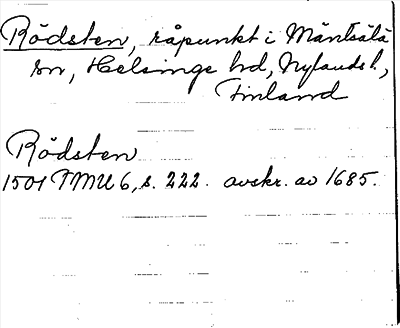 Rödsten, råpunkt i Mäntsälä
sn, Helsinge hd, Nylands l.,
Finland
Rödsten
1501 TMU 6, s. 222. avskr. av 1685.